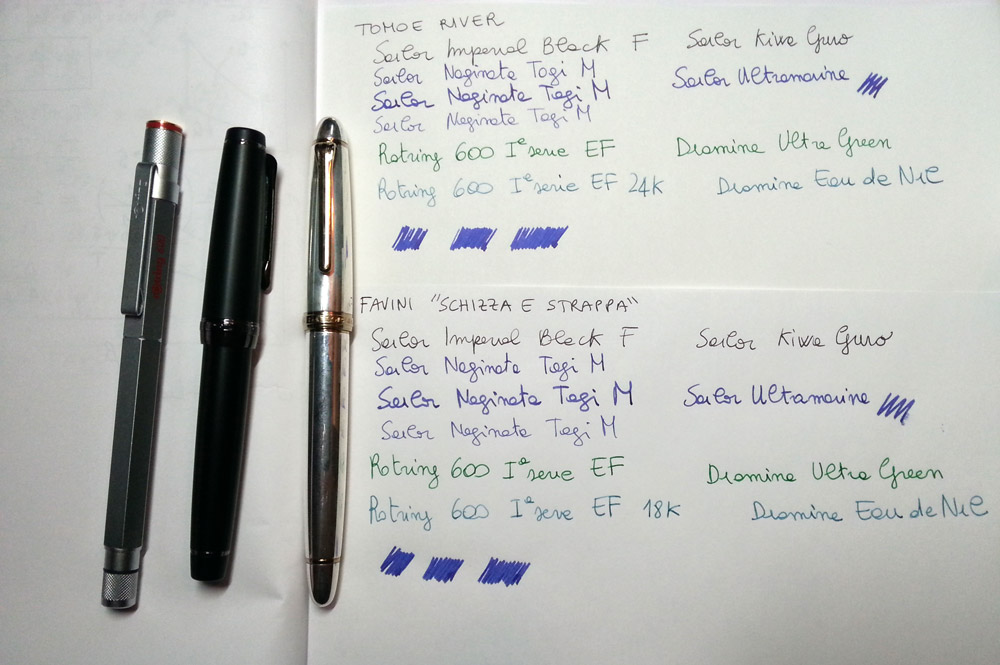 TOMOE RIVER
Sailor Imperial Black F Sailor Kiwa Guro
Sailor Naginata Togi M
Sailor Naginata Togi M Sailor Ultramarine
Sailor Naginata Togi M
Rotring 600 Iª serie EF Diamine Ultra Green
Rotring 600 Iª serie EF 24K Diamine Eau de Nil
FAVINI "SCHIZZA E STRAPPA"
Sailor Imperial Black F Sailor Kiwa Guro
Sailor Naginata Togi M
Sailor Naginata Togi M Sailor Ultramarine
Sailor Naginata Togi M
Rotring 600 Iª serie EF Diamine Ultra Green
Rotring 600 Iª serie EF 18K Diamine Eau de Nil